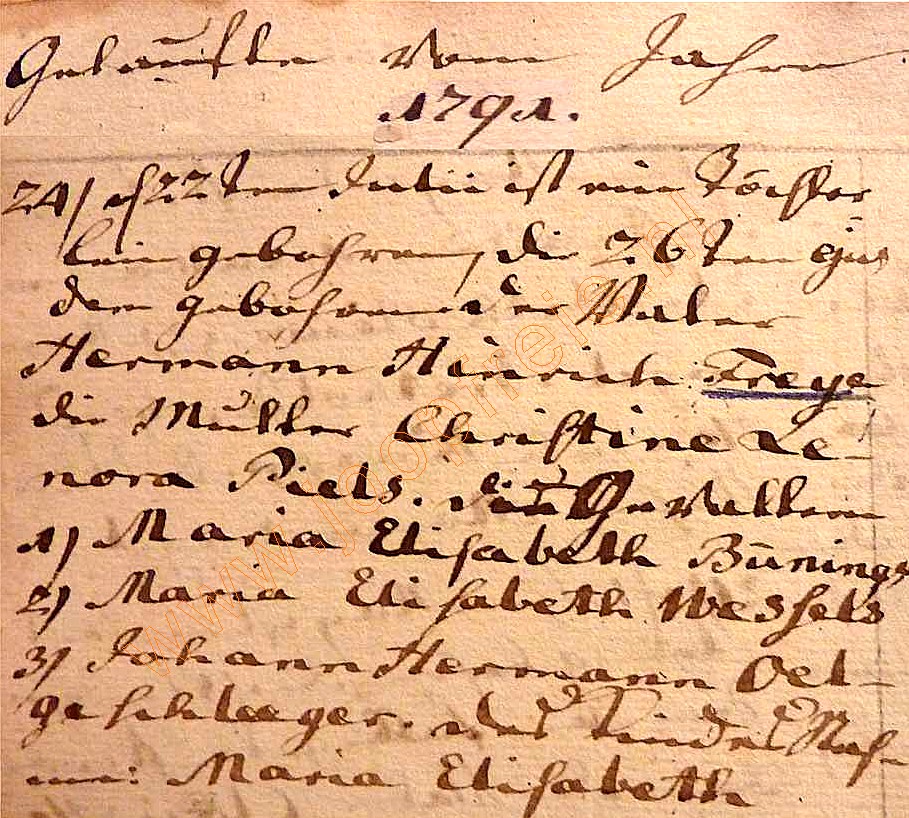 Getaufte Vom Jahre
1791.
24) d 22ten Julii ist ein Töchter
lein gebohren, die 26ten ejus
dem gebohren der Vater
Hermann Hinrich Freye
die Mutter Christine Le-
nora Piels. die Gevattern
1) Maria Elisabeth Bünings
2) Maria Elisabeth Wessels
3) Johann Hermann Oel-
geschlaeger. des Kindes Nah-
me: Maria Elisabeth